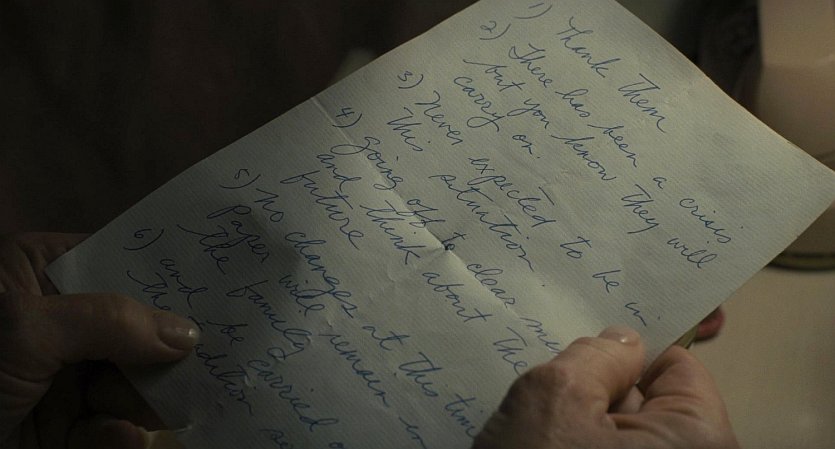 1) Thank them
2) There has been a crisis
but you know they will
carry on.
3) Never expected to be in
this situation.
4) going off to clear
and think about the
future
5) no changes at this time
Paper will remain in
the family
6) and be carried
the tradition